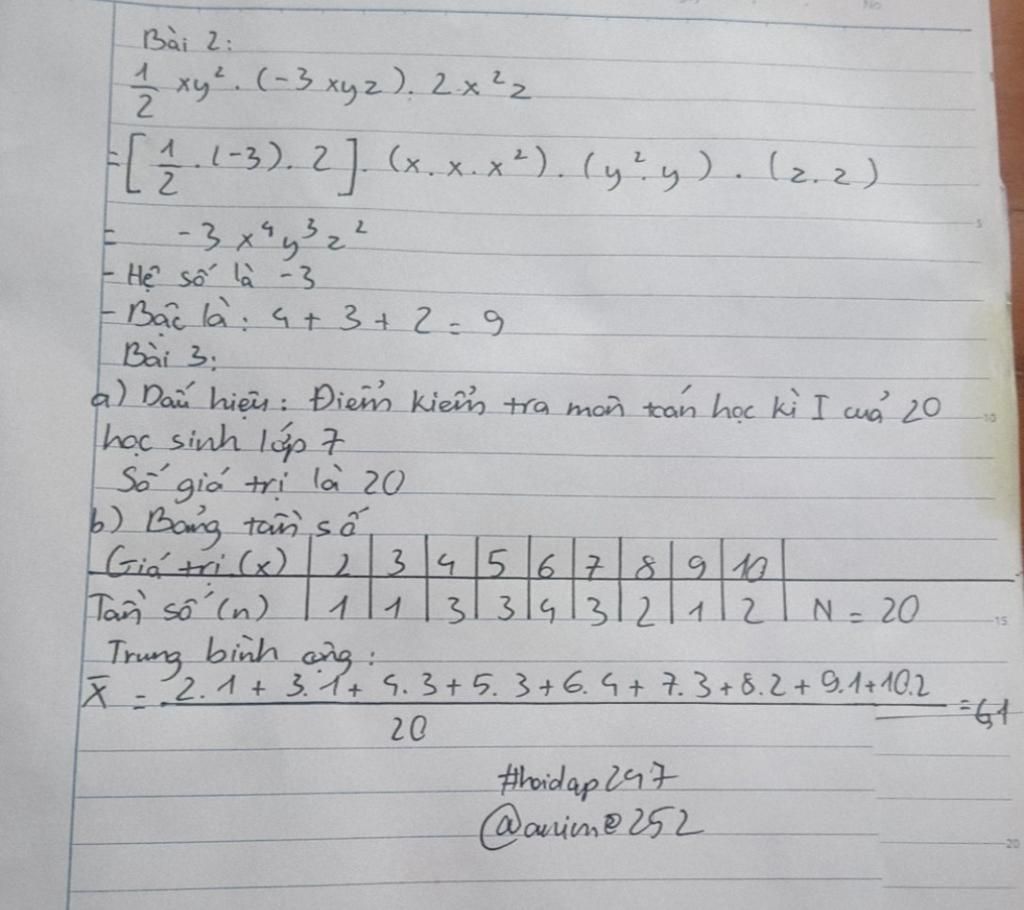 Bài 2:
1/2 xy². (-3 xyz). 2x²z
=[1/2 .(-3). 2]. (x.x.x²). (y².y). (z.z)
= -3 x⁴y³z²
- Hệ số là -3
- Bậc là: 4 + 3 + 2 = 9
Bài 3:
a) Dấu hiệu: Điểm kiểm tra môn toán học kì I của 20
học sinh lớp 7
Số giá trị là 20
b) Bảng tần số
Giá trị (x) | 2 | 3 | 4 | 5 | 6 | 7 | 8 | 9 | 10 |
Tần số (n) | 1 | 1 | 3 | 3 | 4 | 3 | 2 | 1 | 2 | N = 20
Trung bình cộng:
X̄ = (2.1 + 3.1 + 4.3 + 5.3 + 6.4 + 7.3 + 8.2 + 9.1 + 10.2)/20 = 6,1
#hoidap247